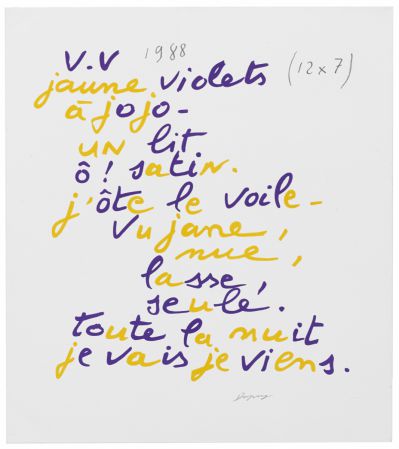 v.v 1988
jaune violets (12 x 7)
à jojo-
un lit.
ô! satin.
j'ôte le voile-
Vu jane,
nue,
lasse,
seule.
toute la nuit
je vais je viens.